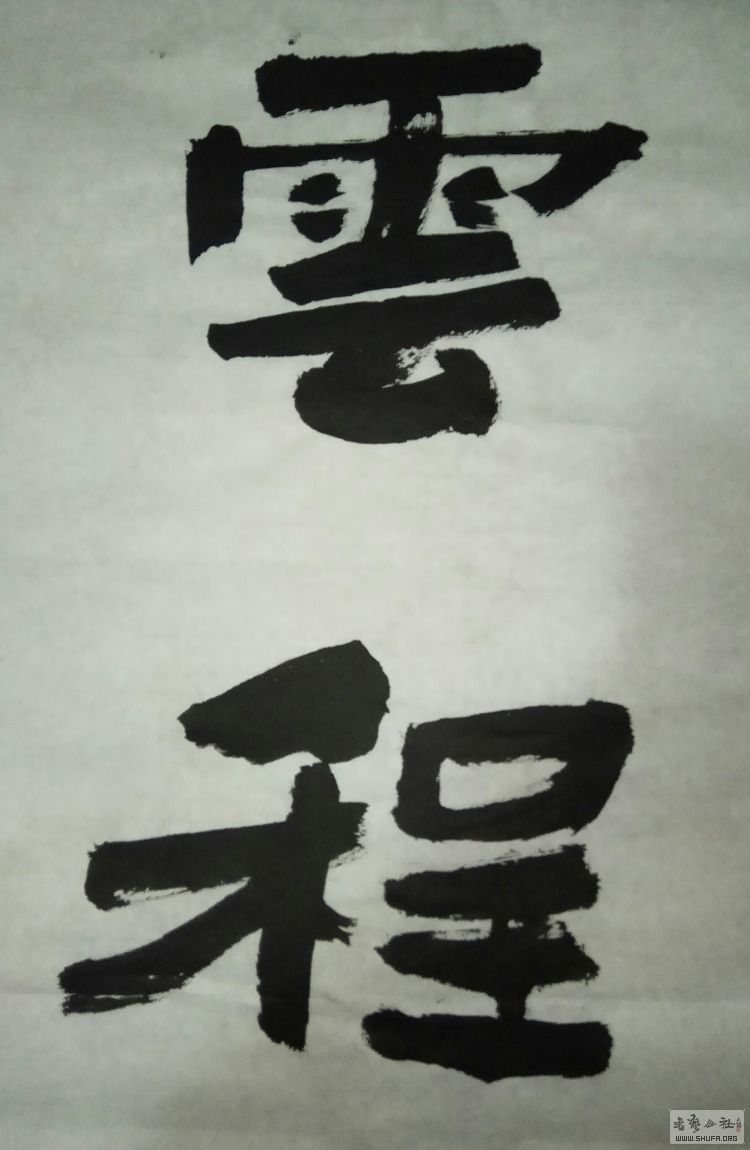 雲程
书艺公社
WWW.SHUFA.ORG